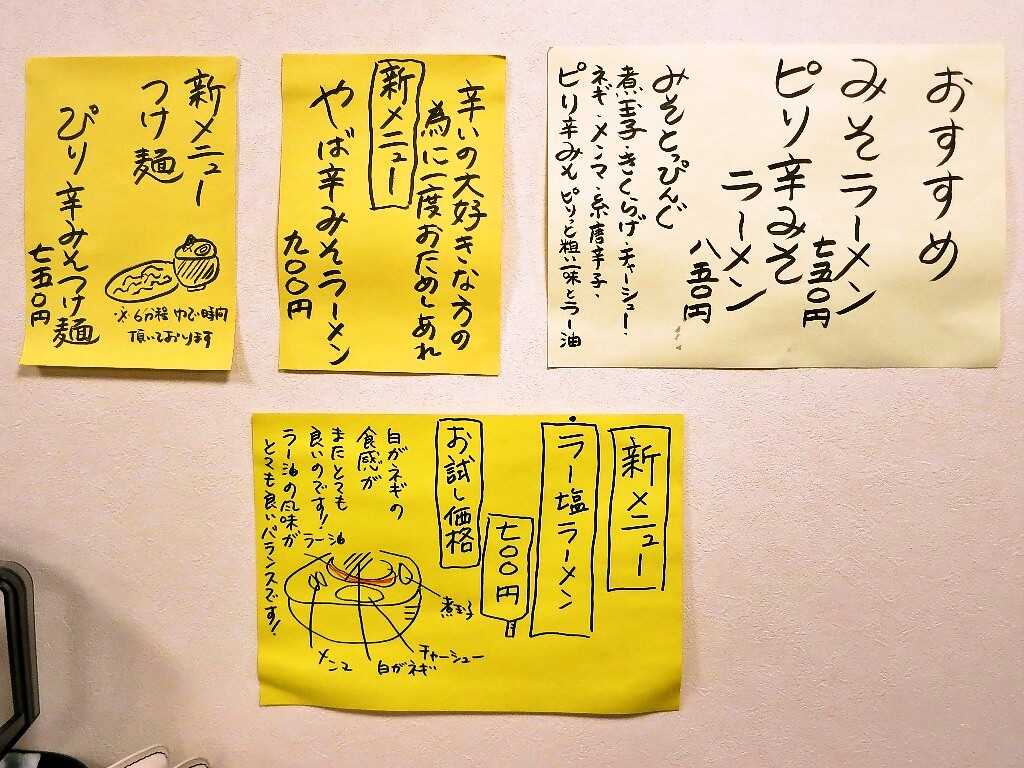 おすすめ
みそラーメン
七五〇円
ピリ辛みそ
ラーメン
八五〇円
みそとっぴんぐ
煮玉子・きくらげ・チャーシュー・
ネギ・メンマ・糸唐辛子、
ピリ辛みそ ピリッと粗い一味とラー油
辛いの大好きな方の
為に一度おためしあれ
新メニュー
やば辛みそラーメン
九〇〇円
新メニュー
つけ麺
ぴり辛みそつけ麺
七五〇円
※6分程ゆで時間
頂いております
新メニュー
ラー塩ラーメン
七〇〇円
お試し価格
白がネギの
食感が
またとても
良いのです!
ラー油の風味が
とても良いバランスです!
ラー油
煮玉子
チャーシュー
白がネギ
メンマ